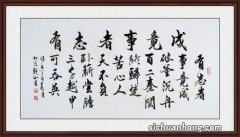 有志者事竟成
有志者
破釜沉舟
百二秦關
終楚
苦心人
天不負
卧薪嘗膽
三千越甲
可吞吴
sichuanhong.com